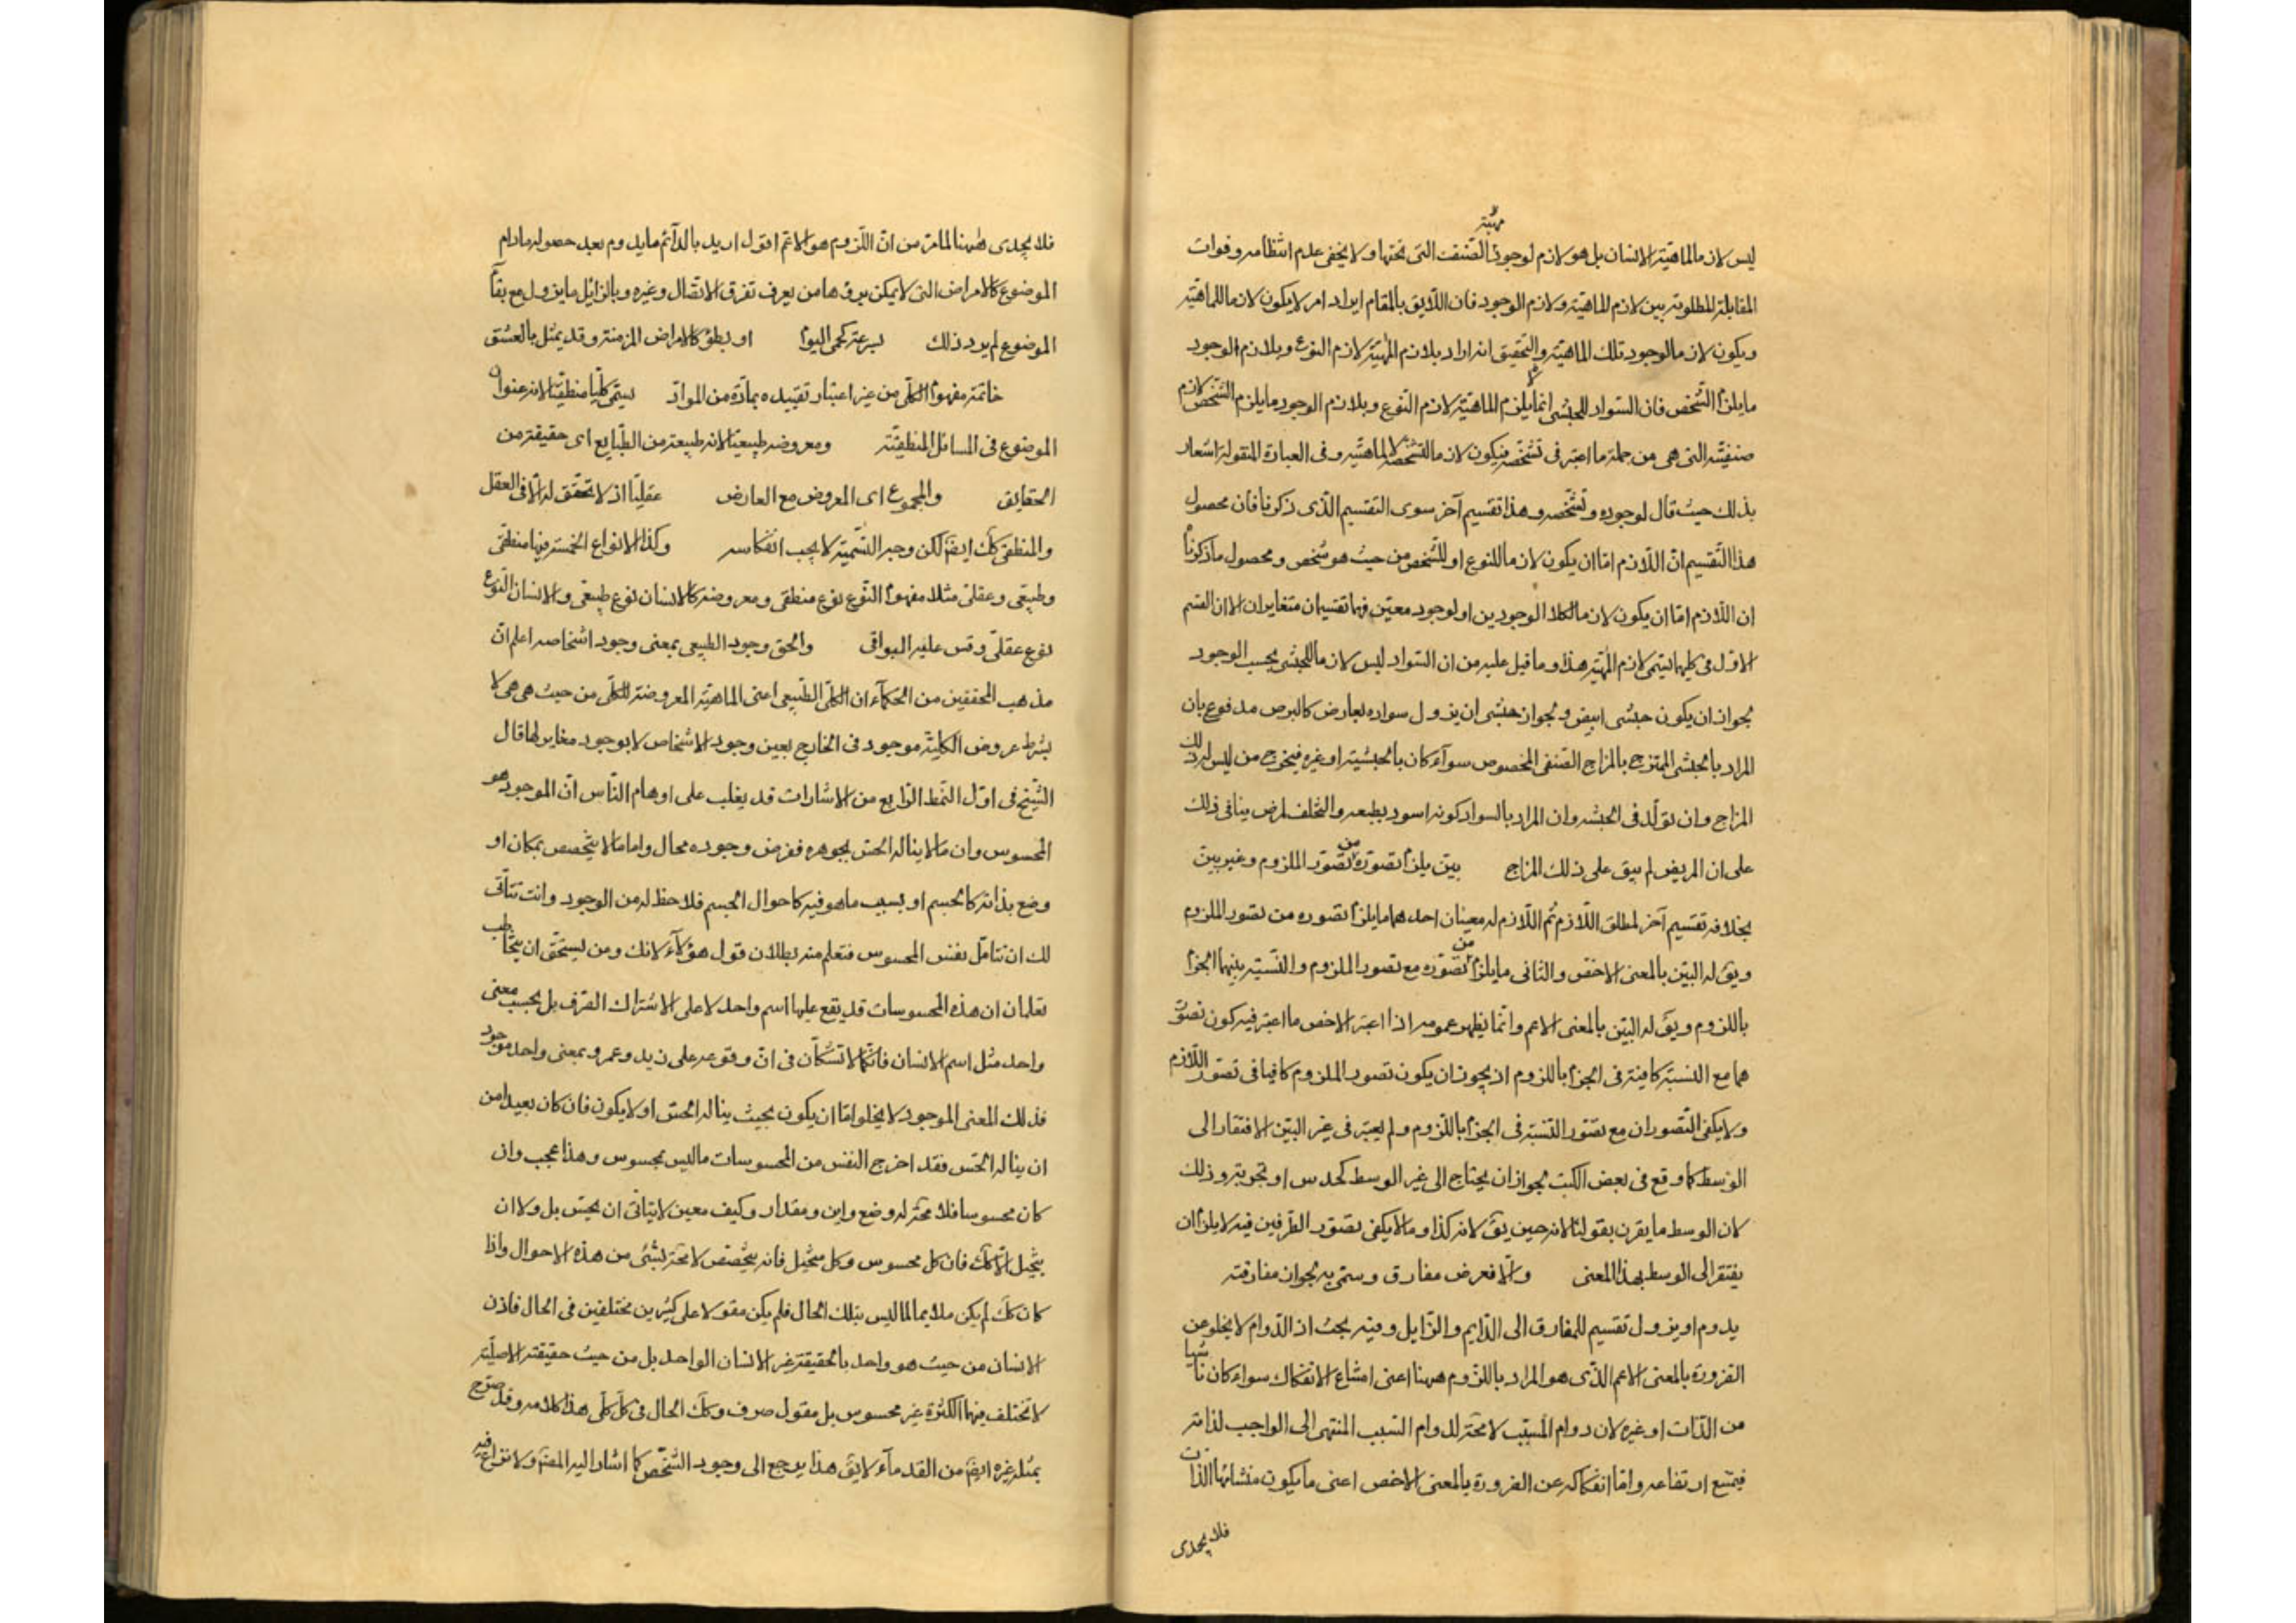 ليس لازما لماهية الانسان بل هو لازم لوجود الصنف التى تحتها ولا يخفى عدم انتظامه وفوات
مهيته
المقابلة المطلوبة بين لازم الماهية ولازم الوجود فان اللايق بالمقام ايراد امر لا يكون لازما للماهية
ويكون لازما لوجود تلك الماهية والتحقيق انه اراد بلازم المهية لازم النوع وبلازم الوجود
ما يلزم الشخص فان السواد للحبشى انما يلزم الماهية لازم النوع وبلازم الوجود ما يلزم الشخص لازم
صنفيته التى هى من جملة ما اعتبر فى تشخصه فيكون لازما لتشخصه لا لماهيته وفى العبارة المنقولة اشعار
بذلك حيث قال لوجوده وتشخصه وهذا تقسيم آخر سوى التقسيم الذى ذكرنا فان محصول
هذا التقسيم ان اللازم اما ان يكون لازما للنوع او للشخص من حيث هو شخص ومحصول ما ذكرنا
ان اللازم اما ان يكون لازما لكلا الوجودين او لوجود معين فهما تقسيمان متغايران الا ان القسم
الاول فى كليهما يسمى لازم المهية هذا وما قيل عليه من ان السواد ليس لازما للحبشى بحسب الوجود
لجواز ان يكون حبشى ابيض ولجواز حبشى ان يزول سواده لعارض كالبرص مدفوع بان
المراد بالحبشى الممتزج بالمزاج الصنفى المخصوص سواء كان بالحبشية او غيره فيخرج من ليس له ذلك
المزاج وان تولد فى الحبشه وان المراد بالسواد كونه اسود بطبعه والتخلف لمرض ينافى ذلك
على ان المريض لم يبق على ذلك المزاج بين يلزم تصوره من تصور الملزوم وغير بين
بخلافه تقسيم آخر لمطلق اللازم ثم اللازم له معنيان احدهما ما يلزم تصوره من تصور الملزوم
ويق له البين بالمعنى الاخص والثانى ما يلزم من تصوره مع تصور الملزوم والنسبة بينهما الجزم
باللزوم ويق له البين بالمعنى الاعم وانما يظهر عمومه اذا اعتبر الاخص ما اعتبر فيه كون تصور
هما مع النسبة كافية فى الجزم باللزوم اذ يجوز ان يكون تصور الملزوم كافيا فى تصور اللازم
ولا يكفى التصوران مع تصور النسبة فى الجزم باللزوم ولم يعتبر فى غير البين الافتقار الى
الوسط كما وقع فى بعض الكتب لجواز ان يحتاج الى غير الوسط كحدس او تجربة وذلك
لان الوسط ما يقرن بقولنا لانه حين يق لانه كذا وما لا يكفى تصور الطرفين فيه لا يلزم ان
يفتقر الى الوسط بهذا المعنى والا فعرض مفارق وسمى به لجواز مفارقته
يدوم او يزول تقسيم للمفارق الى الدايم والزايل وفيه بحث اذ الدوام لا يخلو عن
الضرورة بالمعنى الاعم الذى هو المراد باللزوم ههنا اعنى امتناع الانفكاك سواء كان ناشيا
من الذات او غيره لان دوام المسبب لا محة لدوام السبب المنتهى الى الواجب لذاته
فيمتنع ارتفاعه واما انفكاكه عن الضرورة بالمعنى الاخص اعنى ما يكون منشائها الذات
فلا يجدى
فلا يجدى ههنا لما مر من ان اللزوم هو الاعم اقول اريد بالدائم ما يدوم بعد حصوله ما دام
الموضوع كالامراض التى لا يمكن برؤها من يعرف تفرق الاتصال وغيره وبالزائل ما يزول مع بقاء
الموضوع لم يود ذلك بسرعة كحمى اليوم او بطؤ كالامراض المزمنة وقد يمثل بالعشق
خاتمة مفهوم الكلى من غير اعتبار تقييده بمادة من المواد يسمى كليا منطقيا لانه عنوان
الموضوع فى المسائل المنطقية ومعروضه طبيعيا لانه طبيعة من الطبايع اى حقيقة من
الحقايق والمجموع اى المعروض مع العارض عقليا اذ لا تحقق له الا فى العقل
والمنطقى كك ايضا لكن وجه التسمية لا يجب انعكاسه وكذا الانواع الخمسة فيها منطقى
وطبيعى وعقلى مثلا مفهوم النوع نوع منطقى ومعروضه كالانسان نوع طبيعى والانسان النوع
نوع عقلى وقس عليه البواقى والحق وجود الطبيعى بمعنى وجود اشخاصه اعلم ان
مذهب المحققين من الحكماء ان الكلى الطبيعى اعنى الماهية المعروضة للكلى من حيث هى هى لا
بشرط عروض الكلية موجود فى الخارج بعين وجود الاشخاص لا بوجود مغاير لها قال
الشيخ فى اول النمط الرابع من الاشارات قد يغلب على اوهام الناس ان الموجود هو
المحسوس وان ما لا يناله الحس بجوهره ففرض وجوده محال واما ما لا يتخصص بمكان او
وضع بذاته كالجسم او بسبب ما هو فيه كاحوال الجسم فلا حظ له من الوجود وانت تتأتى
لك ان تتامل نفس المحسوس فتعلم منه بطلان قول هؤلاء لانك ومن يستحق ان يخاطب
تعلمان ان هذه المحسوسات قد يقع عليها اسم واحد لا على الاشتراك الصرف بل بحسب معنى
واحد مثل اسم الانسان فانكما لا تشكان فى ان وقوعه على زيد وعمرو بمعنى واحد موجود
فذلك المعنى الموجود لا يخلو اما ان يكون بحيث يناله الحس او لا يكون فان كان بعيدا من
ان يناله الحس فقد اخرج النفس من المحسوسات ما ليس بمحسوس وهذا عجب وان
كان محسوسا فلا محة له وضع واين ومقدار وكيف معين لا يتاتى ان يحس بل ولا ان
يتخيل الا كك فان كل محسوس وكل متخيل فانه يتخصص لا محة بشئ من هذه الاحوال واذا
كان كك لم يكن ملايما لما ليس بتلك الحال فلم يكن مقولا على كثيرين مختلفين فى الحال فاذن
الانسان من حيث هو واحد بالحقيقة غير الانسان الواحد بل من حيث حقيقته الاصلية
لا تختلف فيها الكثرة غير محسوس بل معقول صرف وكك الحال فى كل كلى هذا كلامه وقد صرح
بمثله غيره ايضا من القدماء لا يق هذا يرجع الى وجود الشخص كما اشار اليه المصنف ولا نزاع فيه